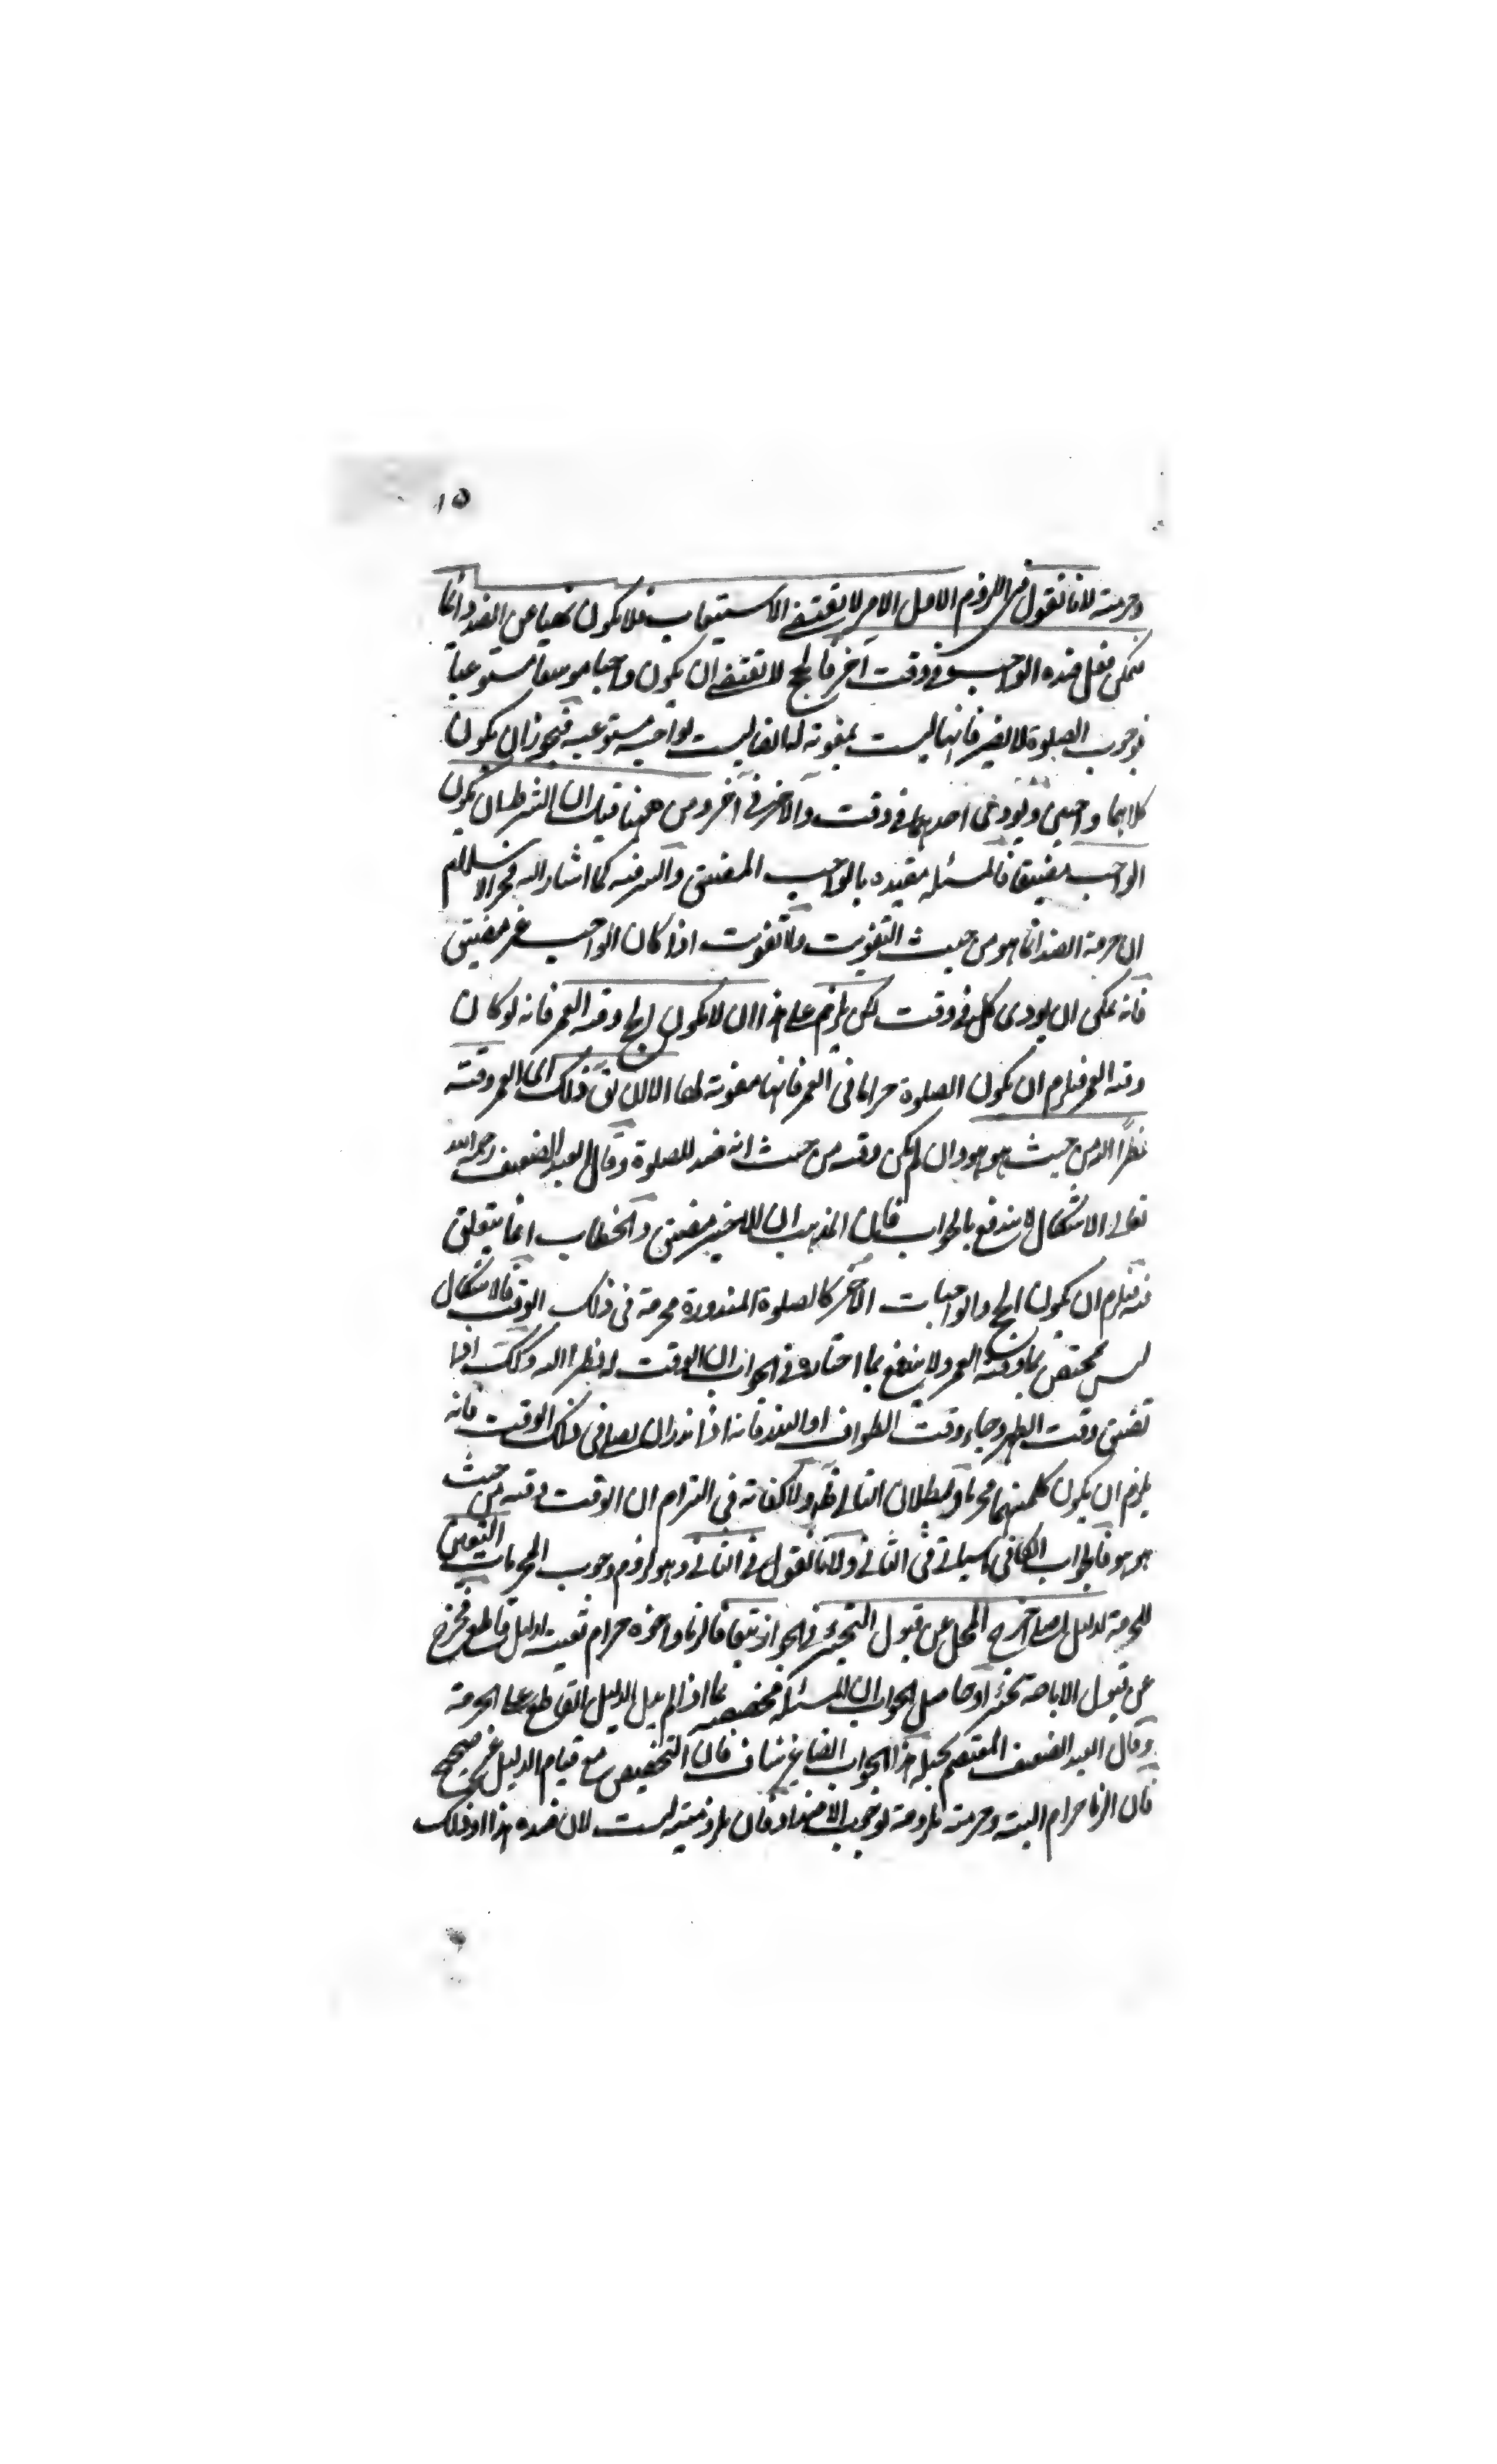 ١٥
وحرمته لانا نقول في اللزوم الاول الامر لا يقتضي الاستيعاب فلا يكون نهيا عن الضد دائما
يمكن فعل ضده الواجب في وقت آخر فالحج لا يقتضي ان يكون واجبا موسعا مستوعبا
فوجوب الصلوة لا يضر فانها ليست بمفوتة له ايضا ليست لواجبه مستوعبه فيجوز ان يكون
كلاهما واجبين ويودى احدهما في وقت والآخر في آخر ومن ههنا قيل ان الشرط ان يكون
الواجب مضيقا فالمسئلة مقيده بالواجب المضيق والسر فيه كما اشار اليه فخر الاسلام
ان حرمة الضد انما هو من حيث التفويت ولا تفويت اذا كان الواجب غير مضيق
فانه يمكن ان يودى كل في وقت لكن يلزم على هذا ان لا يكون الحج وقته العمر فانه لو كان
وقته العمر فيلزم ان يكون الصلوة حراما في العمر فانها مفوتة لها الا ان يق ذلك انما العمر وقته
نظرًا اليه من حيث هو هو وان لم يكن وقته من حيث انه ضد للصلوة وقال العبد الضعيف رحمه الله
تعالى الاشكال لا يندفع بالجواب فان المذهب ان الاخير مضيق والخطاب انما يتعلق
فيه فيلزم ان يكون الحج والواجبات الآخر كالصلوة المنذورة محرمة في ذلك الوقت فالاشكال
ليس بمختص بما وقته العمر ولا يندفع بما اختاره في الجواب ان الوقت له نظرا اليه وكذلك اذا
تضيق وقت الظهر وجاء وقت الطواف او النذر فانه اذا نذر ان يصلي في ذلك الوقت فانه
يلزم ان يكون كل منهما محرما وبطلان التالي ظ ولا كفاية في التزام ان الوقت وقته من حيث
هو هو فالجواب الكافي ما سياتي في الثاني ولانا نقول في الثاني وهو لزوم وجوب المحرمات التعيين
للحرمة لدليل اصلي اخرج المحل عن قبول التخيير في الجواز تبعا فالزنا واخوه حرام ثبت لدليل قاطع فخرج
عن قبول الاباحة تخيرا وحاصل الجواب ان المسئلة مخصصه بما اذا لم يدل الدليل القاطع على الحرمة
وقال العبد الضعيف المعتصم بحبله هذا الجواب ايضا غير شاف فان التخصيص مع قيام الدليل غير صحيح
فان الزنا حرام البتة وحرمته ملزومة لوجوب الاضداد فان ملزوميته ليست لان ضده هذا او ذلك